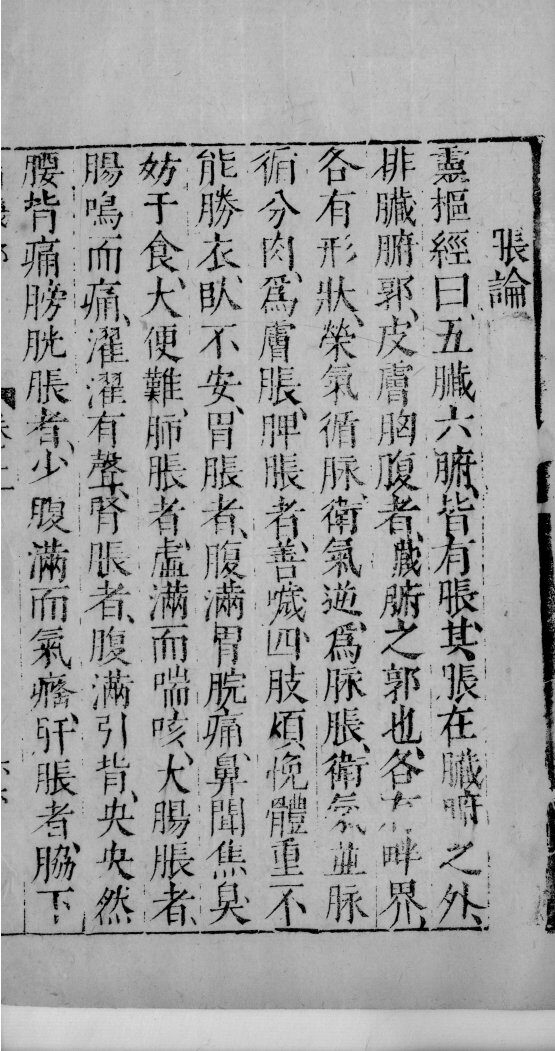 脹論
靈樞經曰、五臟六腑、皆有脹、其脹在臟腑之外、
排臟腑郭、皮膚胸腹者、藏腑之郭也、各有畔界、
各有形狀、榮氣循脉、衛氣逆、爲脉脹、衛氣並脉
循分肉、爲膚脹、脾脹者、善噦、四肢煩悗、體重不
能勝衣、臥不安、胃脹者、腹滿胃脘痛、鼻聞焦臭、
妨于食、大便難、肺脹者、虛滿而喘咳、大腸脹者、
腸鳴而痛、濯濯有聲、腎脹者、腹滿引背、央央然
腰背痛、膀胱脹者、少腹滿而氣癃、肝脹者、脇下